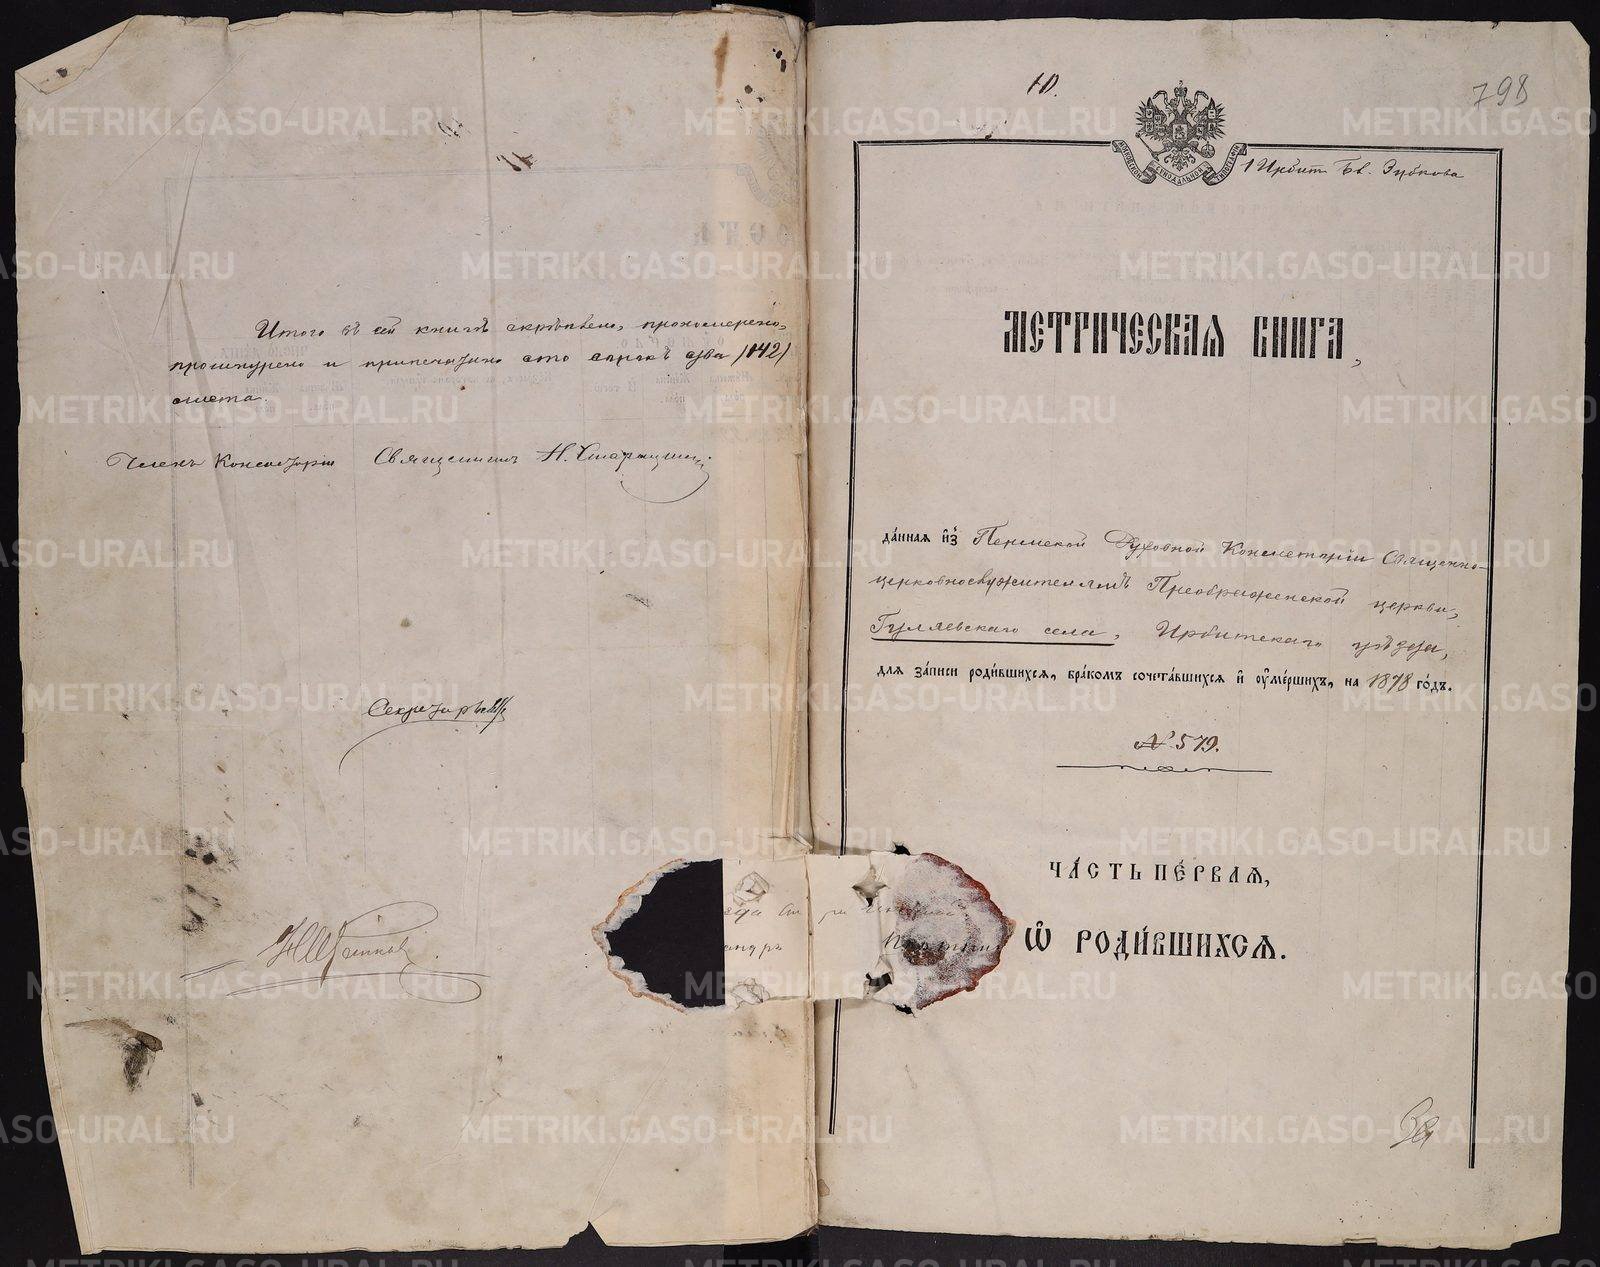 Итого въ сей книгѣ скрѣплено, прономерено,
прошнурено и припечатано сто сорокъ два /142/
листа.
Членъ Консисторіи Священникъ Н.
Секретарь
10.
798
МОСКОВСКОЙ СѴНОДАЛЬНОЙ ТИПОГРАФІИ
1 Ирбит Бл. Зубкова
МЕТРИЧЕСКАЯ КНИГА,
да́нная и҆з̾ Пермской Духовной Консисторіи Священно-
церковнослужителямъ Преображенской церкви,
Гуляевскаго села, Ирбитскаго уѣзда,
для за́писи роди́вшихся, бра́комъ сочета́вшихся и҆ ᲂу҆ме́ршихъ, на 1878 го́дъ.
№ 579.
ЧА́СТЬ ПЕ́РВАЯ,
Ѽ РОДИ́ВШИХСЯ.
METRIKI.GASO-URAL.RU